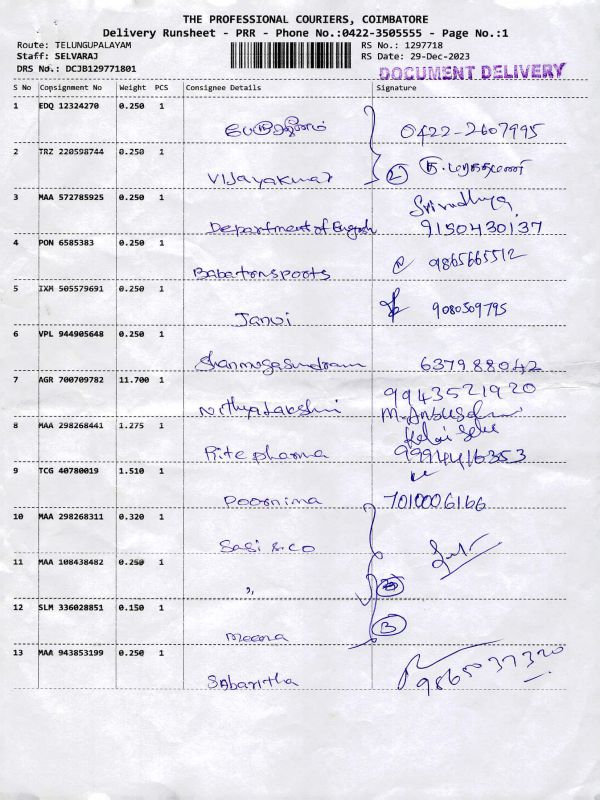 THE PROFESSIONAL COURIERS, COIMBATORE
Delivery Runsheet - PRR - Phone No.:0422-3505555 - Page No.:1
Route: TELUNGUPALAYAM RS No.: 1297718
Staff: SELVARAJ RS Date: 29-Dec-2023
DRS No.: DCJB129771801 DOCUMENT DELIVERY
S No Consignment No Weight PCS Consignee Details Signature
1 EDQ 12324270 0.250 1
0422-2607995
2 TRZ 220598744 0.250 1
Vijayakumar 2
3 MAA 572785925 0.250 1
Srivadhya
Department of English 9150430137
4 PON 6585383 0.250 1
Babartonspoots 9865665512
5 IXM 505579691 0.250 1
Janvi 9080509795
6 VPL 944905648 0.250 1
Shanmugasundram 637988042
7 AGR 700709782 11.700 1
9943521920
Nithyalakshmi
8 MAA 298268441 1.275 1
Rite pharma 9994416353
9 TCG 40780019 1.510 1
Poornima 7010006166
10 MAA 298268311 0.320 1
Sasi & co
11 MAA 108438482 0.250 1
"
12 SLM 336028851 0.150 1
Meena 3
13 MAA 943853199 0.250 1
Sabaritha 9865037320